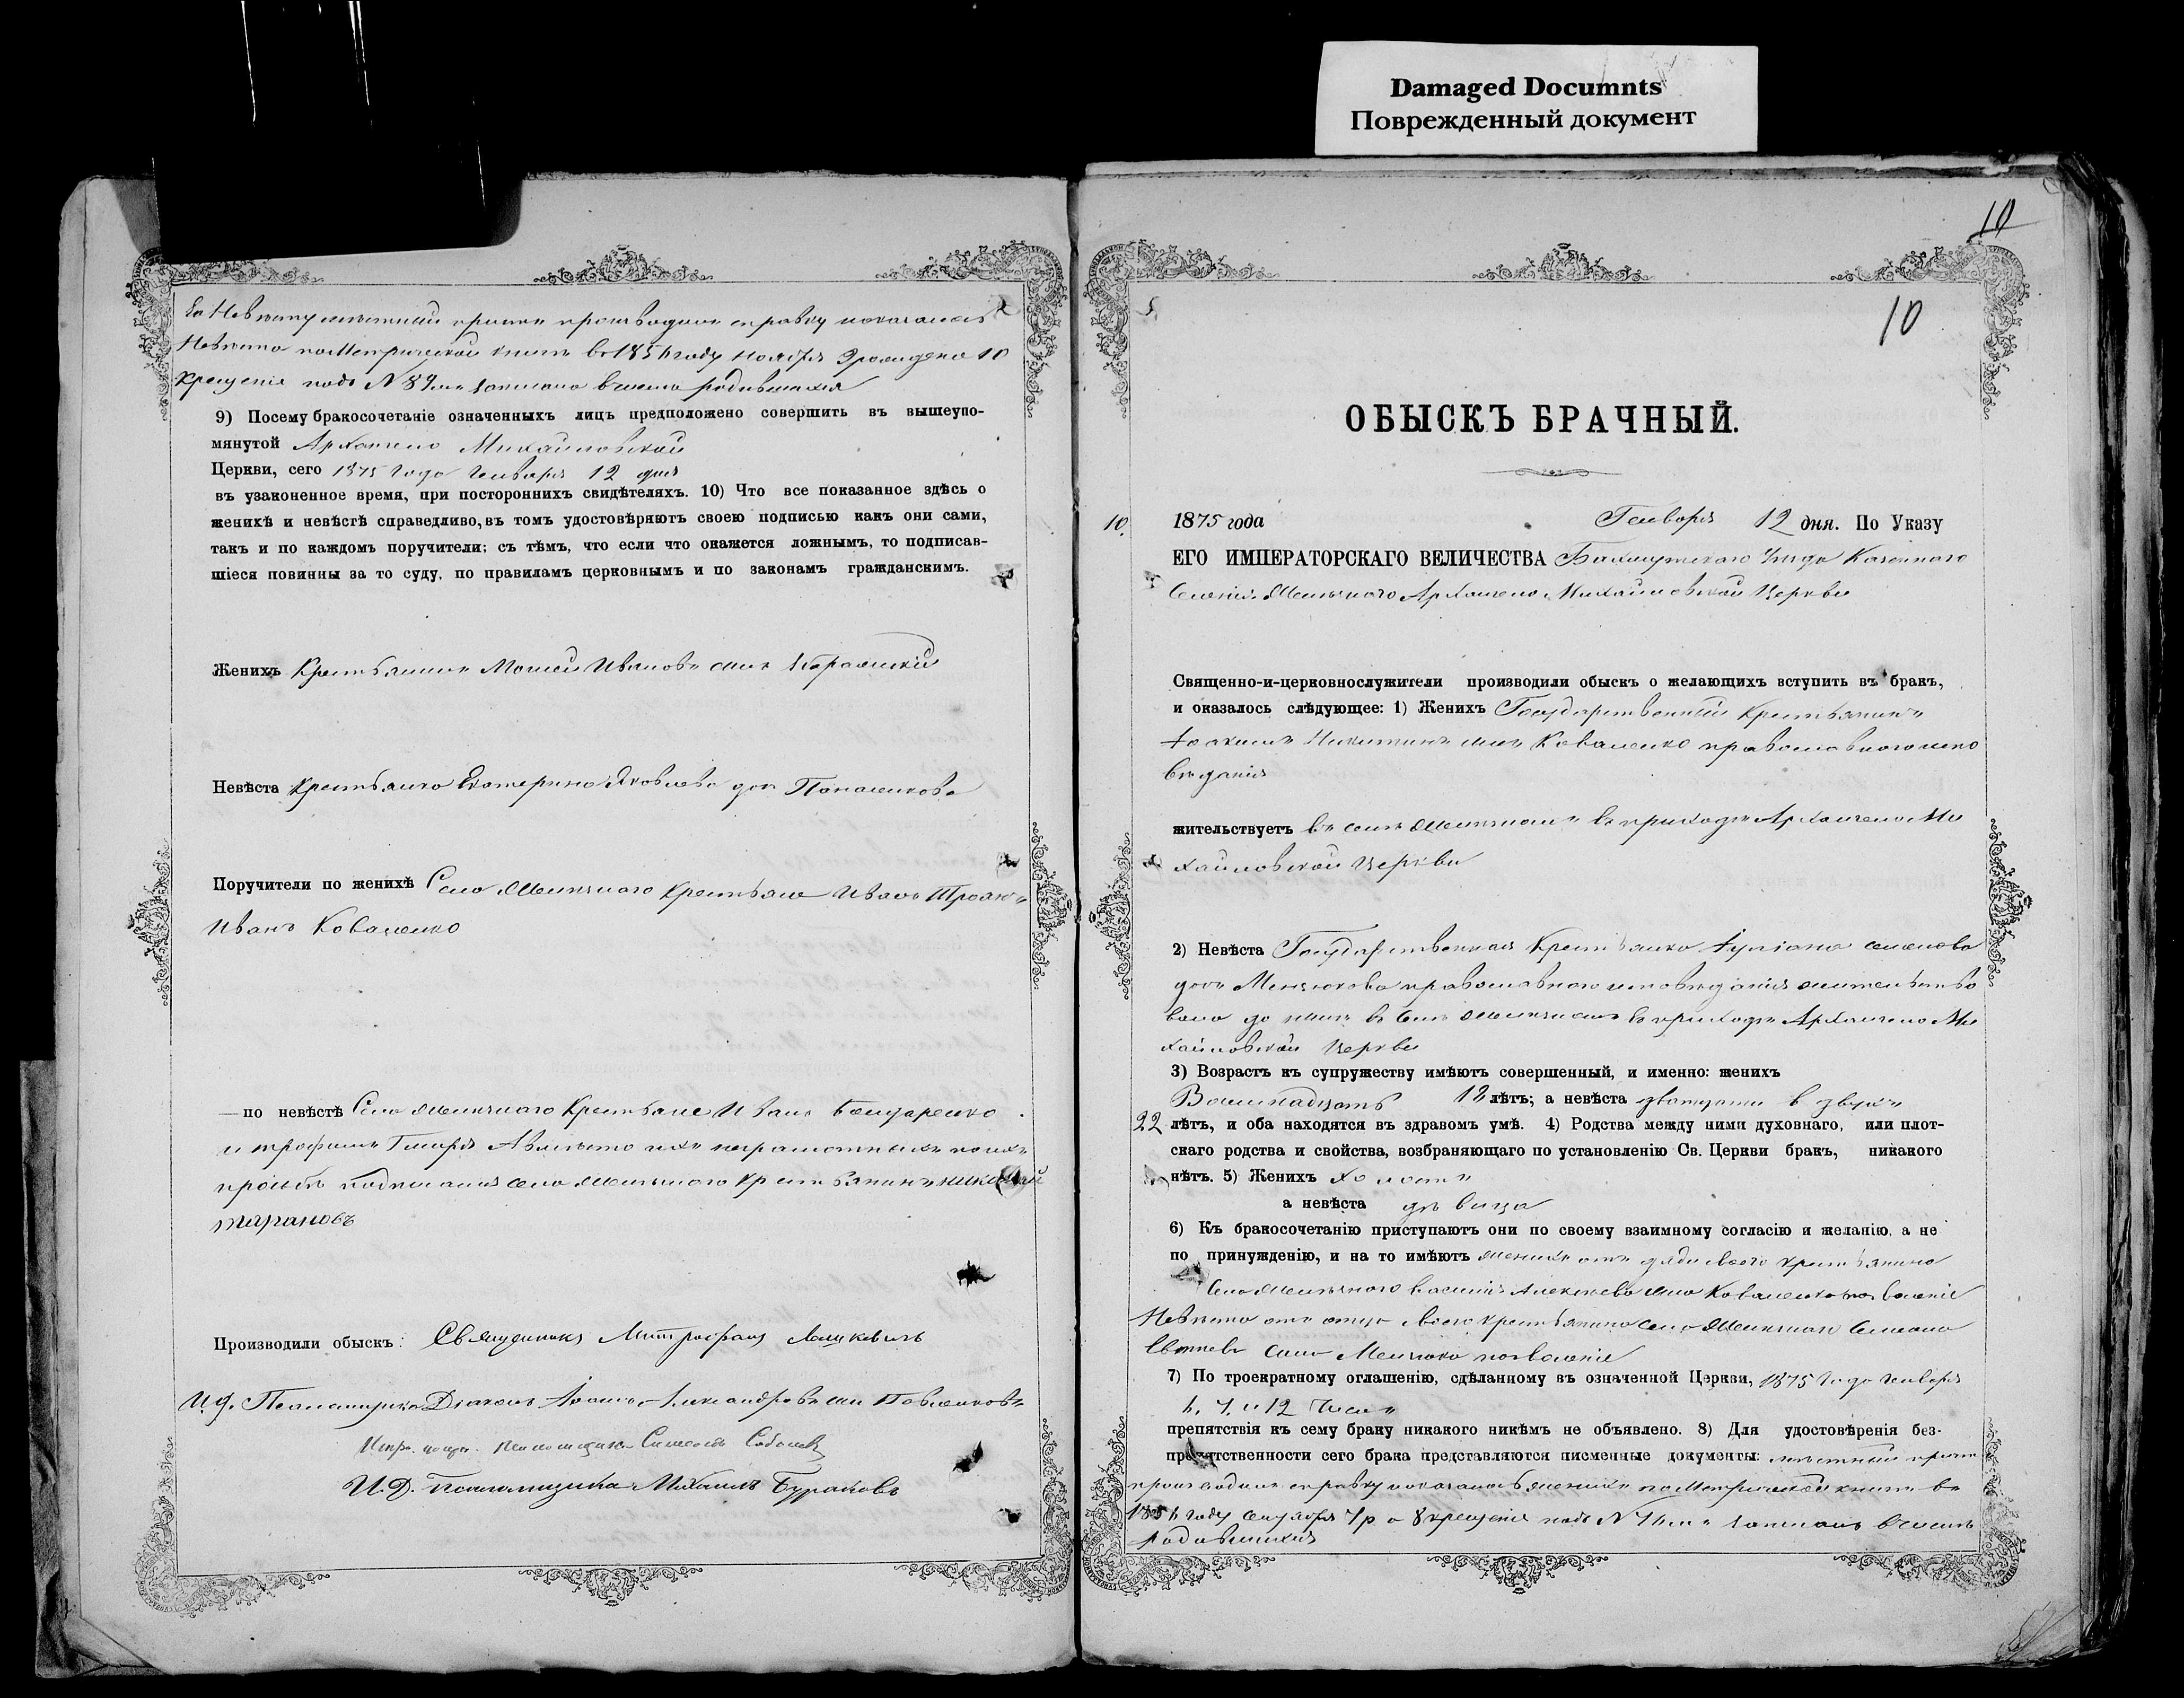 Damaged Documnts
Поврежденный документ
10
за Невесту местный причт производил справку показалась
Невеста по Метрической книге в 1854 году Ноября 9 рождена 10
Крещения подъ N 89м записана в числе родившихся
9) Посему бракосочетаніе означенныхъ лицъ предположено совершить въ вышеупо-
мянутой Архангело Михайловской
Церкви, сего 1875 года Генваря 12 дня
въ узаконенное время, при постороннихъ свидѣтеляхъ. 10) Что все показанное здѣсь о
женихѣ и невѣстѣ справедливо, въ томъ удостовѣряютъ своею подписью какъ они сами,
такъ и по каждомъ поручители; съ тѣмъ, что если что окажется ложнымъ, то подписав-
шіеся повинны за то суду, по правиламъ церковнымъ и по законамъ гражданскимъ.
Женихъ Крестьянинъ Моисей Ивановъ сынъ
Невѣста Крестьянка Екатерина Яковлева дочь Панасенкова
Поручители по женихѣ Села Железнаго Крестьяне Иванъ
Иванъ Коваленко
— по невѣстѣ Села Железнаго Крестьяне Иванъ Бондаренко
и Трофимъ а вместо ихъ неграмотныхъ по ихъ
прозьбѣ подписался села Железнаго Крестьянинъ Николай
Тарановъ
Производили обыскъ: Священникъ Митрофанъ
И.д. Псаломщика Діаконъ Іоаннъ Александровъ сынъ Павленковъ
Испр. должн. псаломщика Симеонъ Соболевъ
И.Д. псаломщика Михаилъ Бураковъ
10
ОБЫСКЪ БРАЧНЫЙ.
10. 1875 года Генваря 12 дня. По Указу
ЕГО ИМПЕРАТОРСКАГО ВЕЛИЧЕСТВА Бахмутскаго Уезда Казеннаго
Селенія Железнаго Архангело Михайловской Церкви
Священно-и-церковнослужители производили обыскъ о желающихъ вступить въ бракъ,
и оказалось слѣдующее: 1) Женихъ Государственный Крестьянинъ
Іоакимъ Никитинъ сынъ Коваленко православного испо
веданія
жительствуетъ въ селе Железномъ в приходе Архангело Ми
хайловской Церкви
2) Невѣста Государственная Крестьянка Іуліана Семенова
дочь Мензюкова православного исповеданія жительство
вала до ныне в селе Железномъ в приходе Архангело Ми
хайловской Церкви
3) Возрастъ къ супружеству имѣютъ совершенный, и именно: женихъ
Восемнадцать 18 лѣтъ; а невѣста двадцати в двухъ
22 лѣтъ, и оба находятся въ здравомъ умѣ. 4) Родства между ними духовнаго, или плот-
скаго родства и свойства, возбраняющаго по установленію Св. Церкви бракъ, никакого
нѣтъ. 5) Женихъ холостъ
а невѣста девица
6) Къ бракосочетанію приступаютъ они по своему взаимному согласію и желанію, а не
по принужденію, и на то имѣютъ женихъ отъ дяди своего крестьянина
села Железнаго Василія Алексеева сына Коваленка позволеніе
Невеста отъ отца своего крестьянина села Железнаго Семена
сына позволеніе
7) По троекратному оглашенію, сдѣланному въ означенной Церкви, 1875 года Генваря
6, 7, и 12 чиселъ
препятствія къ сему браку никакого никѣмъ не объявлено. 8) Для удостовѣренія без-
препятственности сего брака представляются писменные документы: местный причт
производилъ справку показалось женихъ по Метрической книге в
1856 году Сентября 7 р а 8 крещенія подъ N записанъ в числе
родившихся